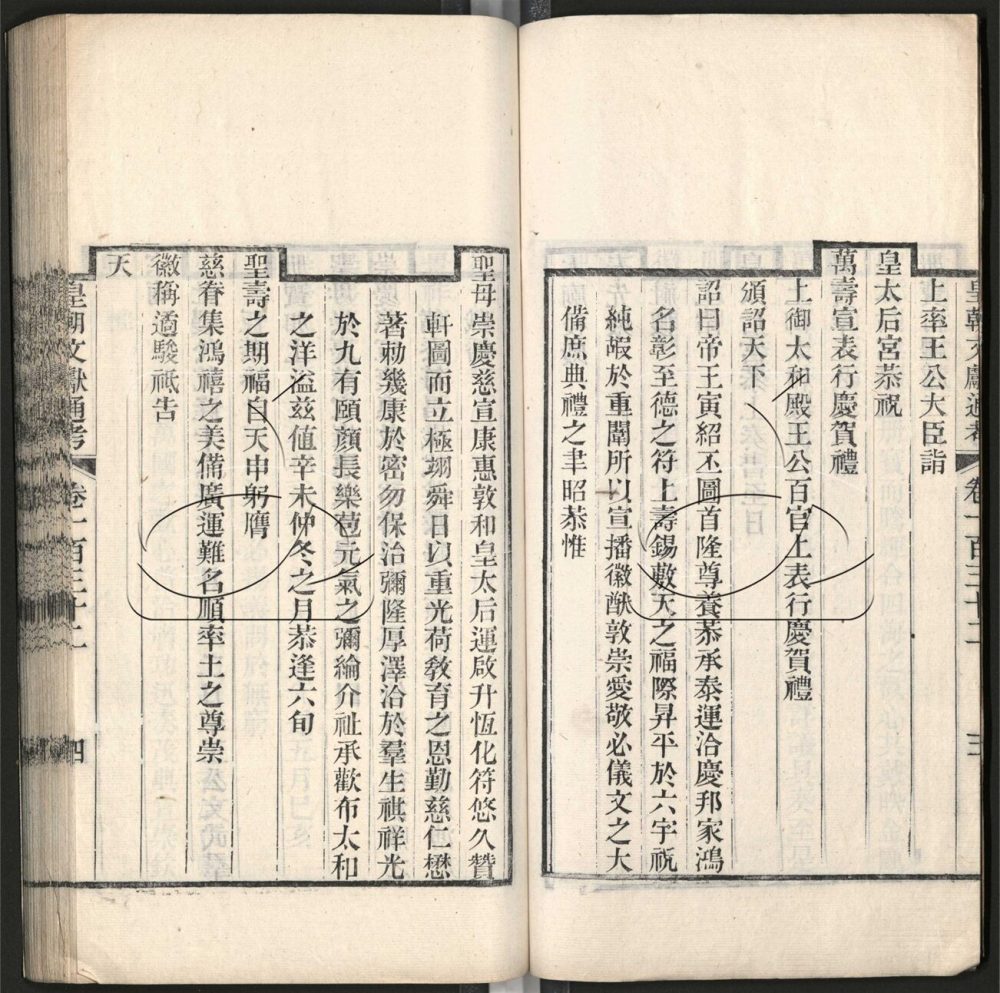 皇朝文獻通考 卷一百三十二 三
上率王公大臣詣
皇太后宮恭祝
萬壽宣表行慶賀禮
上御太和殿王公百官上表行慶賀禮
頒詔天下
詔曰帝王寅紹丕圖首隆尊養恭承泰運洽慶邦家鴻
名彰至德之符上壽錫敷天之福際昇平於六宇祝
純嘏於重闈所以宣播徽猷敦崇愛敬必儀文之大
備庶典禮之聿昭恭惟
聖母崇慶慈宣康惠敦和皇太后運啟升恆化符悠久贊
軒圖而立極翊舜日以重光荷敎育之恩勤慈仁懋
著勅幾康於密勿保治彌隆厚澤洽於羣生祺祥光
於九有頤顏長樂苞元氣之彌綸介祉承歡布太和
之洋溢茲値辛未仲冬之月恭逢六旬
聖壽之期福自天申躬膺
慈眷集鴻禧之美備廣運難名順率土之尊崇
徽稱適駿祗告
天
皇朝文獻通考 卷一百三十二 四